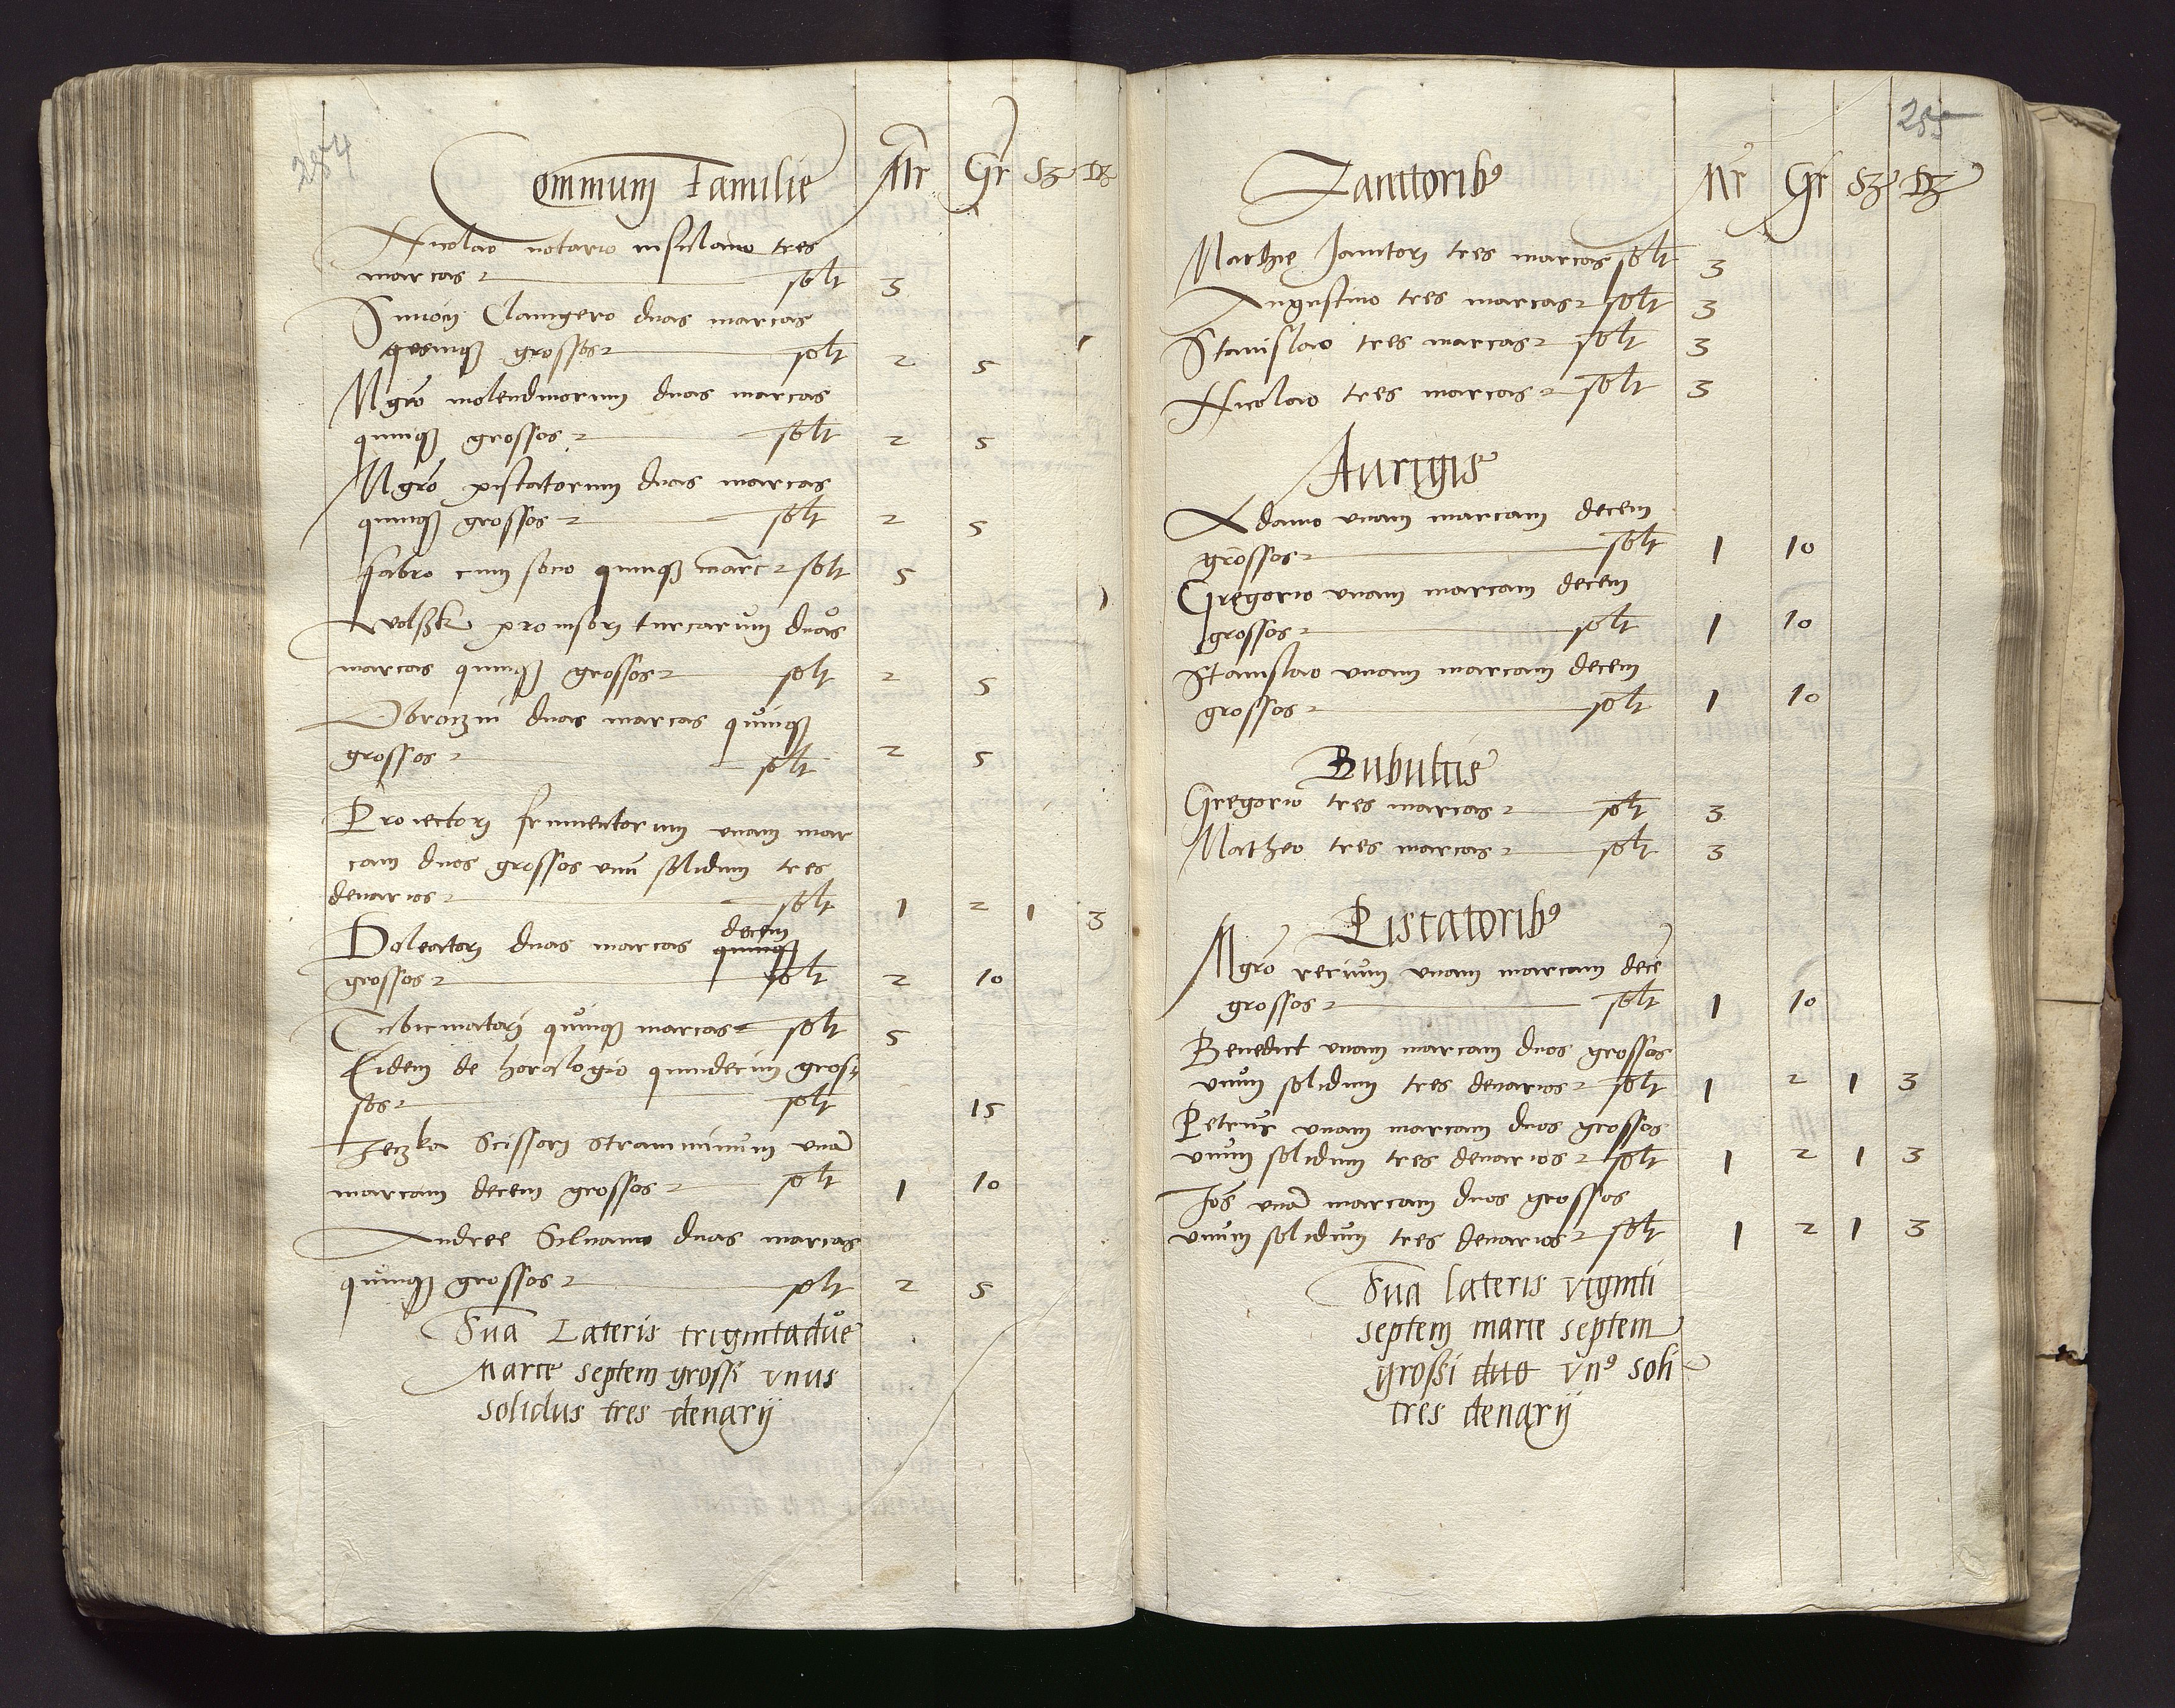 284
Communi Familie Mr Gr Sz Dz
Nicolao notario insulano tres
marcas solt 3
Simoni Clavigero duas marcas
quinqȝ grossos solt 2 5
Mgro molendinorum duas marcas
quinqȝ grossos solt 2 5
Mgro piscatorum duas marcas
quinqȝ grossos solt 2 5
Fabro cum socio quinqȝ marc solt 5
provisori turcarum duas
marcas quinqȝ grossos solt 2 5
Obroczni duas marcas quinqȝ
grossos solt 2 5
Proiectori frumentorum unam mar
cam duos grossos unu solidum tres
denarios solt 1 2 1 3
Doleatori duas marcas quinqȝ decem
grossos solt 2 10
Tubicinatori quinqȝ marcas solt 5
Eidem de horologio quindecim gros
sos solt 15
Jeczka Scissori straminum una
marcam decem grossos solt 1 10
Andree Silvano duas marcas
quinqȝ grossos solt 2 5
Sūa Lateris trigintadue
Marce septem grossi unus
solidus tres denarij
285
Janitorib⁹ Mr Gr Sz Dz
Mathie Janitori tres marcas solt 3
Augustino tres marcas solt 3
Stanislao tres marcas solt 3
Nicolao tres marcas solt 3
Aurigis
Adamo unam marcam decem
grossos solt 1 10
Gregorio unam marcam decem
grossos solt 1 10
Stanislao unam marcam decem
grossos solt 1 10
Bubulcis
Gregorio tres marcas solt 3
Matheo tres marcas solt 3
Piscatorib⁹
Mgro recium unam marcam decē
grossos solt 1 10
Benedict unam marcam duos grossos
unum solidum tres denarios solt 1 2 1 3
Petrus unam marcam duos grossos
unum solidum tres denarios solt 1 2 1 3
Jos unā marcam duos grossos
unum solidum tres denarios solt 1 2 1 3
Sūa lateris viginti
septem marce septem
grossi duo vn⁹ soli
tres denarij